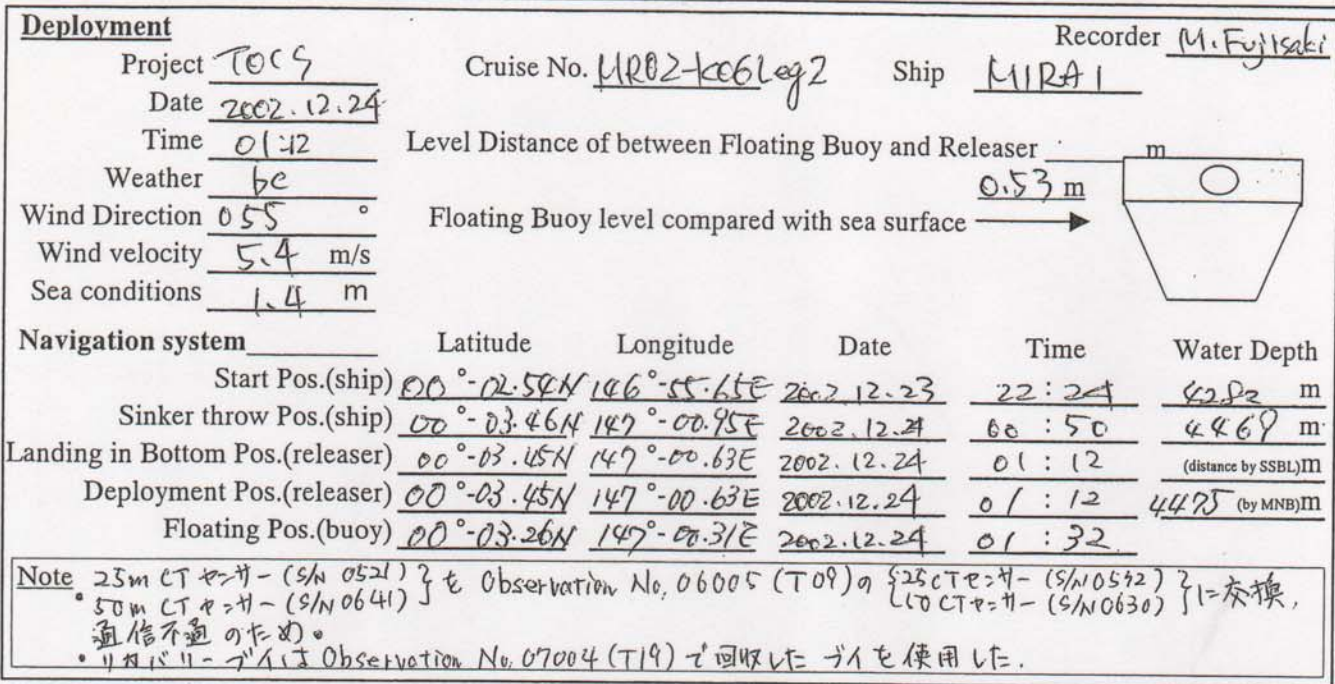 Deployment
Recorder M. Fujisaki
Project TOCS Cruise No. MR02-K06Leg2 Ship MIRAI
Date 2002.12.24
Time 01:12 Level Distance of between Floating Buoy and Releaser m
Weather bc 0.53 m
Wind Direction 055 ° Floating Buoy level compared with sea surface
Wind velocity 5.4 m/s
Sea conditions 1.4 m
Navigation system Latitude Longitude Date Time Water Depth
Start Pos.(ship) 00°-02.54N 146°-55.65E 2002.12.23 22:24 4282 m
Sinker throw Pos.(ship) 00°-03.46N 147°-00.95E 2002.12.24 00:50 4469 m
Landing in Bottom Pos.(releaser) 00°-03.45N 147°-00.63E 2002.12.24 01:12 (distance by SSBL)m
Deployment Pos.(releaser) 00°-03.45N 147°-00.63E 2002.12.24 01:12 4475 (by MNB)m
Floating Pos.(buoy) 00°-03.26N 147°-00.31E 2002.12.24 01:32
Note 25m CTセンサー (S/N 0521) } を Observation No. 06005 (T09)の { 25CTセンサー (S/N0592) } に交換,
・50m CTセンサー (S/N0641) 10 CTセンサー (S/N0630)
通信不通のため。
・リカバリーブイは Observation No. 07004 (T19) で回収したブイを使用した.